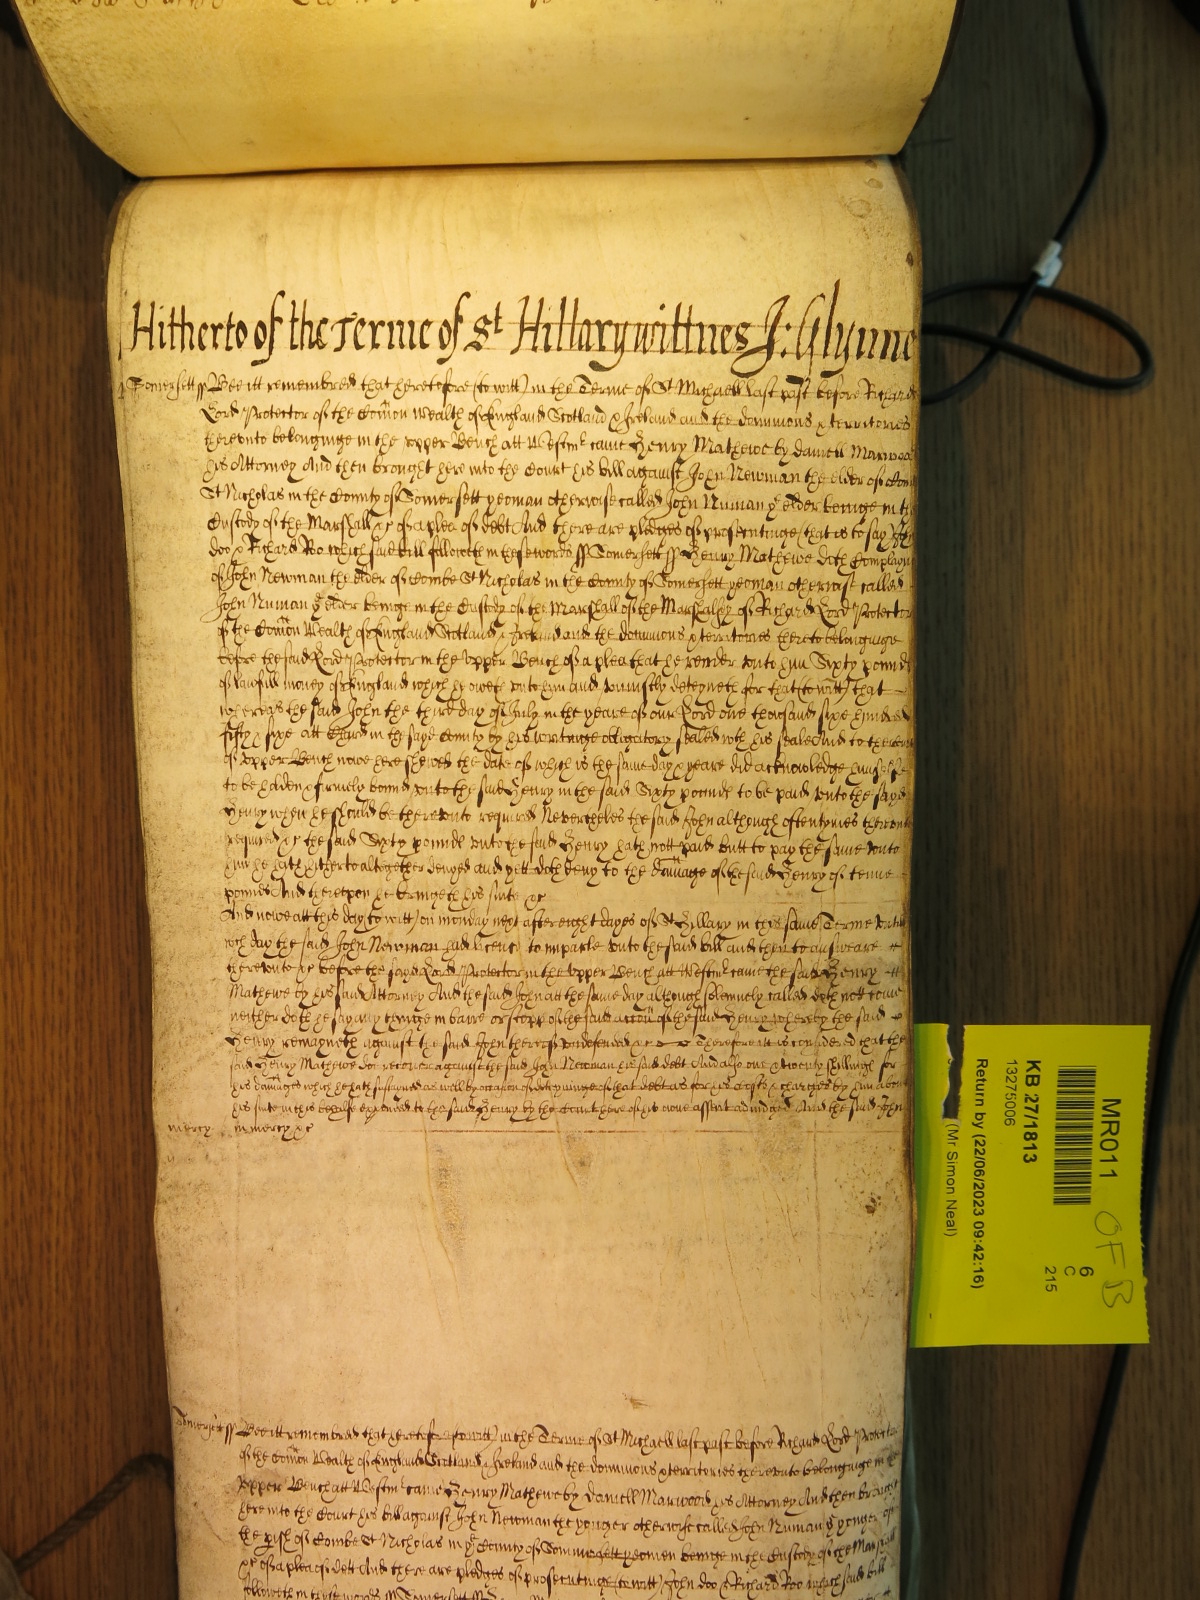 Hitherto of the Terme of St Hillary wittnes J: Glynne
Somersett ss Bee itt remembred that heretofore (to witt) in the Terme of St Michaell last past before Richard
Lord Protector of the Com̄on Wealth of England Scotland & Ireland and the dominions & territories
therevnto belonginge in the vpper Bench att Westmr came Henry Mathewe by daniell Marwood
his Attorney And then brought here into the Court his bill against John Newman the elder of Combe
St Nicholas in the County of Somersett yeoman otherwise called John Numan ye elder beinge in the
Custody of the Marshall &c of a plea of debt And there are pledges of prosecutinge (that is to say) John
doo & Richard Roo which said bill followeth in these words ss Somersett ss Henry Mathewe doth Complayne
of John Newman the elder of Combe St Nicholas in the County of Somersett yeoman otherwise called
John Numan ye elder beinge in the Custody of the Marshall of the Marshalsey of Richard Lord Protector
of the Com̄on Wealth of England Scotland & Ireland and the dominions & territories thereto belonginge
before the said Lord Protector in the vpper Bench of a plea that he render vnto him Sixty pounds
of lawfull money of England which he oweth vnto him and vniustly deteyneth for that (to witt) that
whereas the said John the third day of July in the yeare of our Lord one thousand sixe hundred
fifty & sixe att Chard in the sayd County by his writinge obligatory sealed wth his seale And to the Court
of vpper Bench nowe here shewed the date of which is the same day & yeare did acknowledge himselfe
to be holden & firmely bound vnto the said Henry in the said Sixty pounds to be paid vnto the sayd
Henry when he should be therevnto required Nevertheles the said John although oftentymes therevnto
required &c the said Sixty pounds vnto the said Henry hath nott paid butt to pay the same vnto
him he hath hitherto altogether denyed and yett doth deny to the dam̄age of the said Henry of tenne
pounds And therevpon he bringeth his suite &c
And nowe att this day (to witt) on monday next after eight dayes of St Hillary in this same Terme vntill
wch day the said John Newman had licence to imparle vnto the said bill and then to answeare
therevnto &c before the sayd Lord Protector in the vpper Bench att Westmr came the said Henry
Mathewe by his said Attorney And the said John att the same day although solemnely called doth nott come
neither doth he say any thinge in barre or stopp of the said acc̄on of the said Henry whereby the said
Henry remayneth against the said John thereof vndefended &c Therefore itt is considered that the
said Henry Mathewe doe recover against the said John Newman his said debt And also one & twenty shillings for
his damages which he hath susteyned as well by occasion of deteyninge of that debt as for his Costs & charges by him about
his suite in this behalfe expended to the said Henry by the Court here of his owne assent adiudged And the said John
mercy in mercy &c
Somersett ss Bee itt remembred that heretofore (to witt) in the Terme of St Michaell last past before Richard Lord Protector
of the Com̄on Wealth of England Scotland & Ireland and the dominions & territories therevnto belonginge in the
vpper Bench att Westmr came Henry Mathewe by daniell Marwood his Attorney And then brought
here into the Court his bill against John Newman the yonger otherwise called John Numan ye yonger of
the pish of Combe St Nicholas in ye County of Sommersett yeoman beinge in the Custody of the Marshall
&c of a plea of dett And there are pledges of prosecutinge (to witt) John doo & Richard Roo which said bill
followeth in these words ss Somersett ss
MR011
OF B
KB 27/1813
13275006
6
C
215
Return by (22/06/2023 09:42:16)
(Mr Simon Neal)